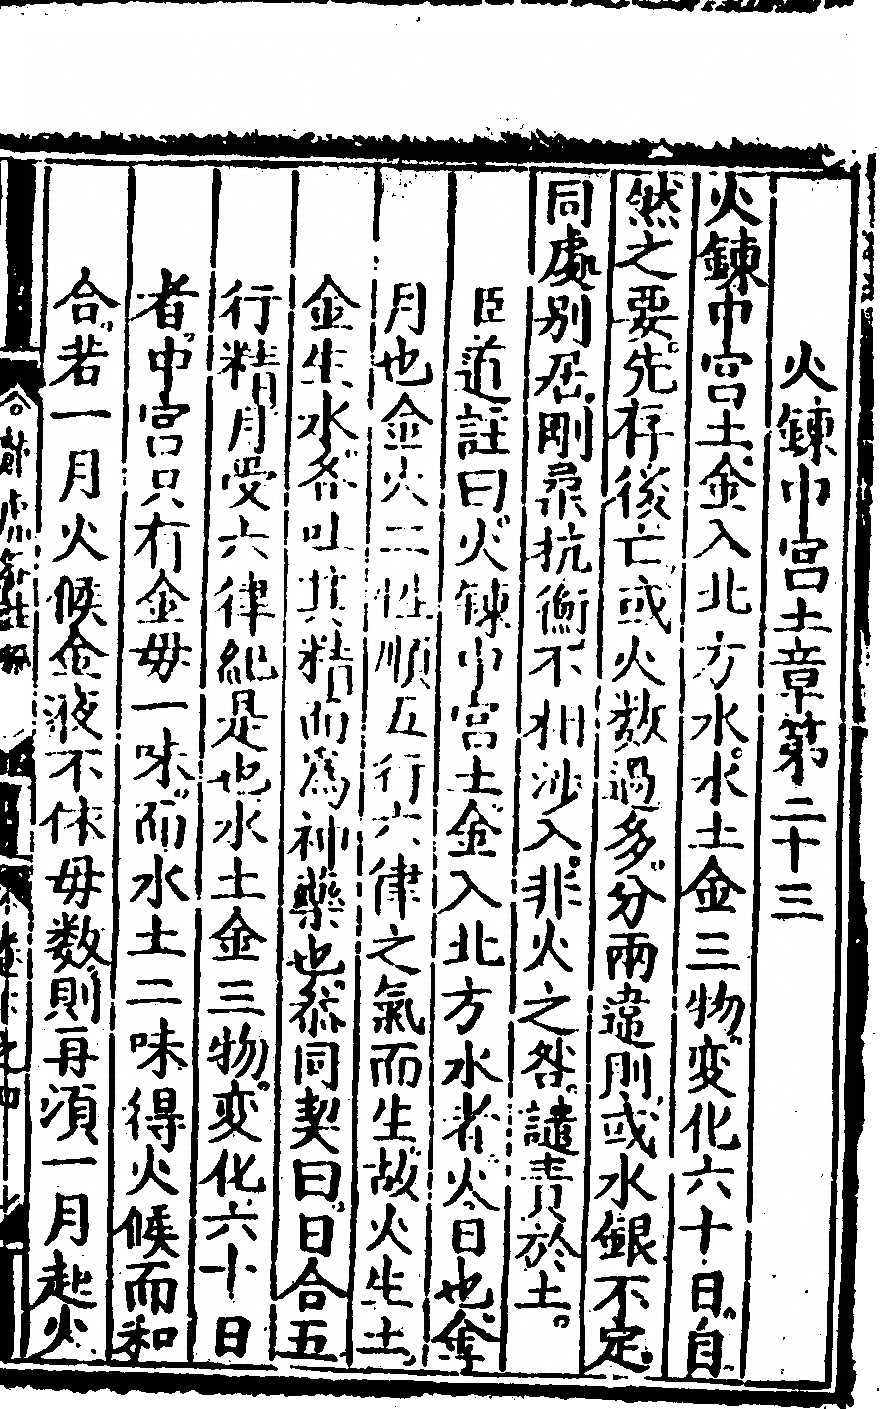 火鍊中宮土章第二十三
火鍊中宮土金入北方水水土金三物変化六十日自
然之要先存後亡或火数過多分兩違則或水銀不定
同處別居剛柔抗衡不相涉入非火之咎譴責於土
臣道註曰火鍊中宮土金入北方水者火日也金
月也金火二性順五行六律之氣而生故火生土
金生水各吐其精而為神藥也叅同契曰日合五
行精月受六律紀是也水土金三物変化六十日
者中宮只有金毋一味而水土二味得火候而和
合若一月火候金液不休毋数則再須一月起火